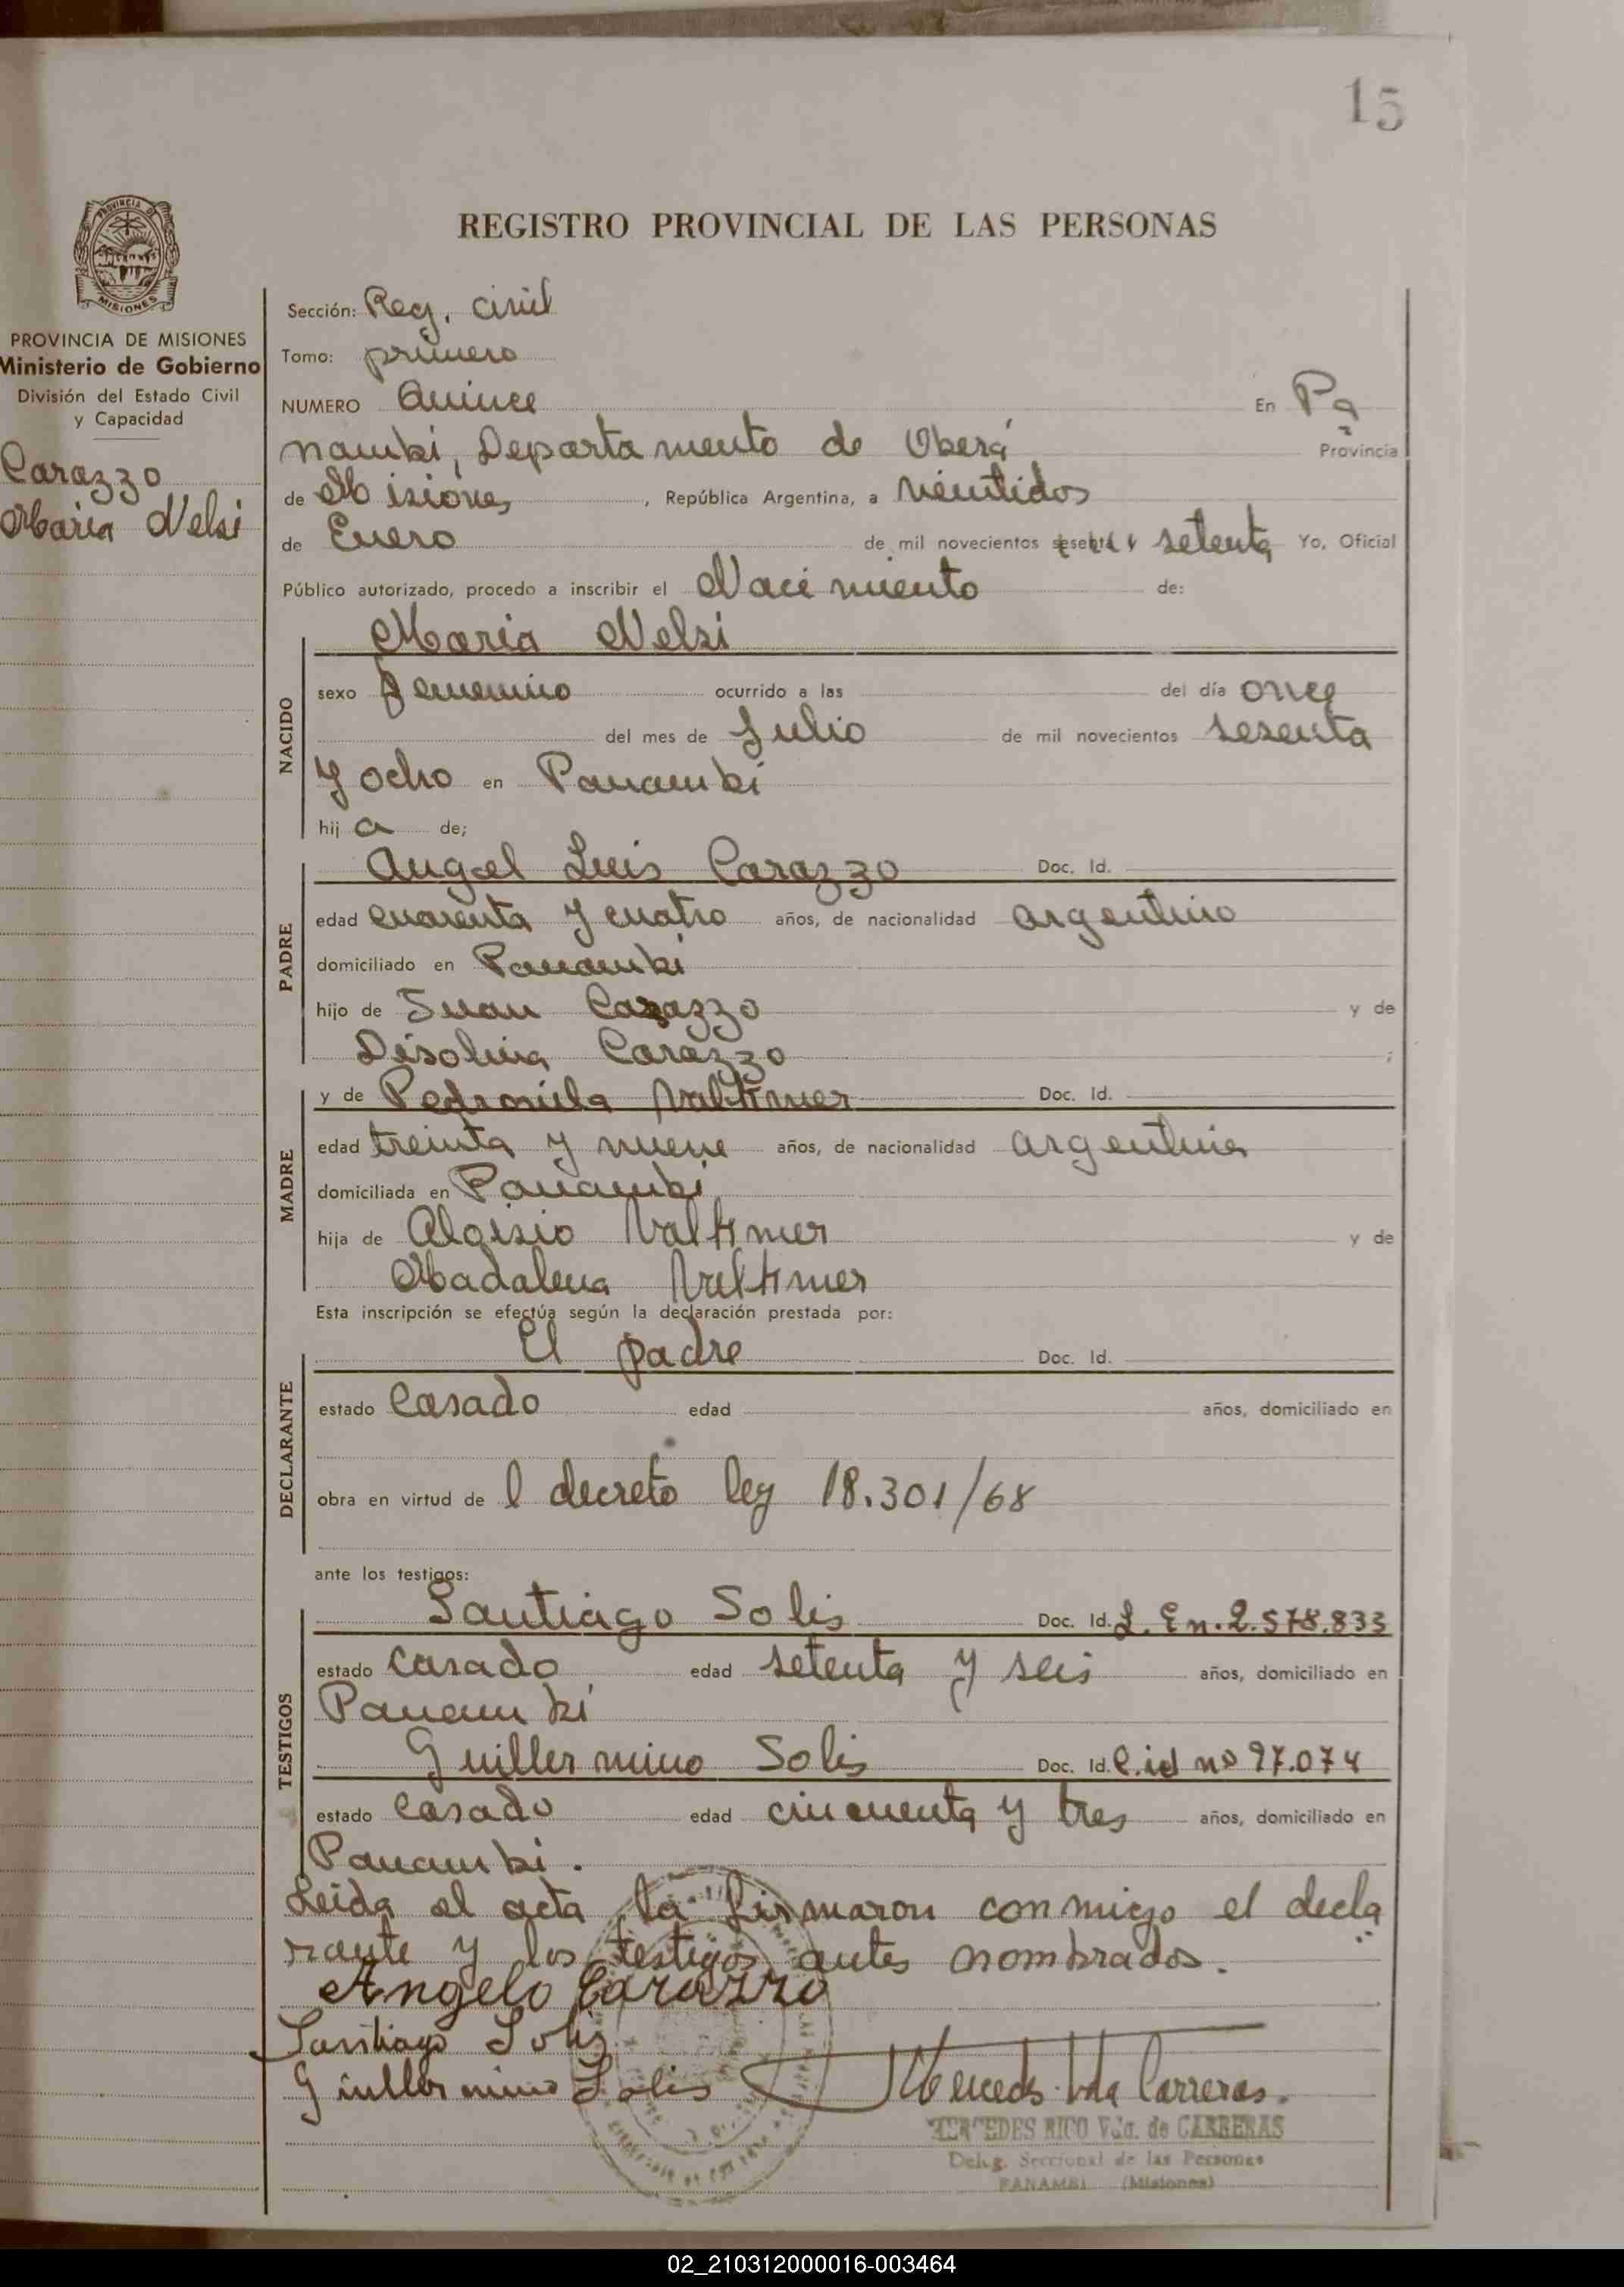 15
PROVINCIA DE
MISIONES
REGISTRO PROVINCIAL DE LAS PERSONAS
PROVINCIA DE MISIONES
Ministerio de Gobierno
División del Estado Civil
y Capacidad
Carazzo
Maria Nelsi
Sección: Reg. civil
Tomo: primero
NUMERO Quince En Pa
nambi, Departamento de Oberá Provincia
de Misiones, República Argentina, a veintidos
de Enero de mil novecientos sesenta y setenta Yo, Oficial
Público autorizado, procedo a inscribir el Nacimiento de:
NACIDO
Maria Nelsi
sexo femenino ocurrido a las del día once
del mes de Julio de mil novecientos sesenta
y ocho en Panambi
hij a de;
PADRE
Angel Luis Carazzo Doc. Id.
edad cuarenta y cuatro años, de nacionalidad argentino
domiciliado en Panambi
hijo de Juan Carazzo y de
Disolina Carazzo ;
MADRE
y de Pedronila Valtimer Doc. Id.
edad treinta y nueve años, de nacionalidad argentina
domiciliada en Panambi
hija de Aloisio Valtimer y de
Madalena Valtimer
Esta inscripción se efectúa según la declaración prestada por:
DECLARANTE
El padre Doc. Id.
estado Casado edad años, domiciliado en
obra en virtud de l decreto ley 18.301/68
ante los testigos:
TESTIGOS
Santiago Solis Doc. Id. L. En. 2.578.833
estado casado edad setenta y seis años, domiciliado en
Panambi
Guillermino Solis Doc. Id. C. id nº 97.074
estado casado edad cincuenta y tres años, domiciliado en
Panambi.
Leida el acta la firmaron conmigo el decla
rante y los testigos antes nombrados.
Angelo Carazzo
Santiago Solis
Guillermino Solis Mercedes Vda Carreras.
MERCEDES RICO Vda. de CARRERAS
Deleg. Seccional de las Personas
PANAMBI (Misiones)
02_210312000016-003464